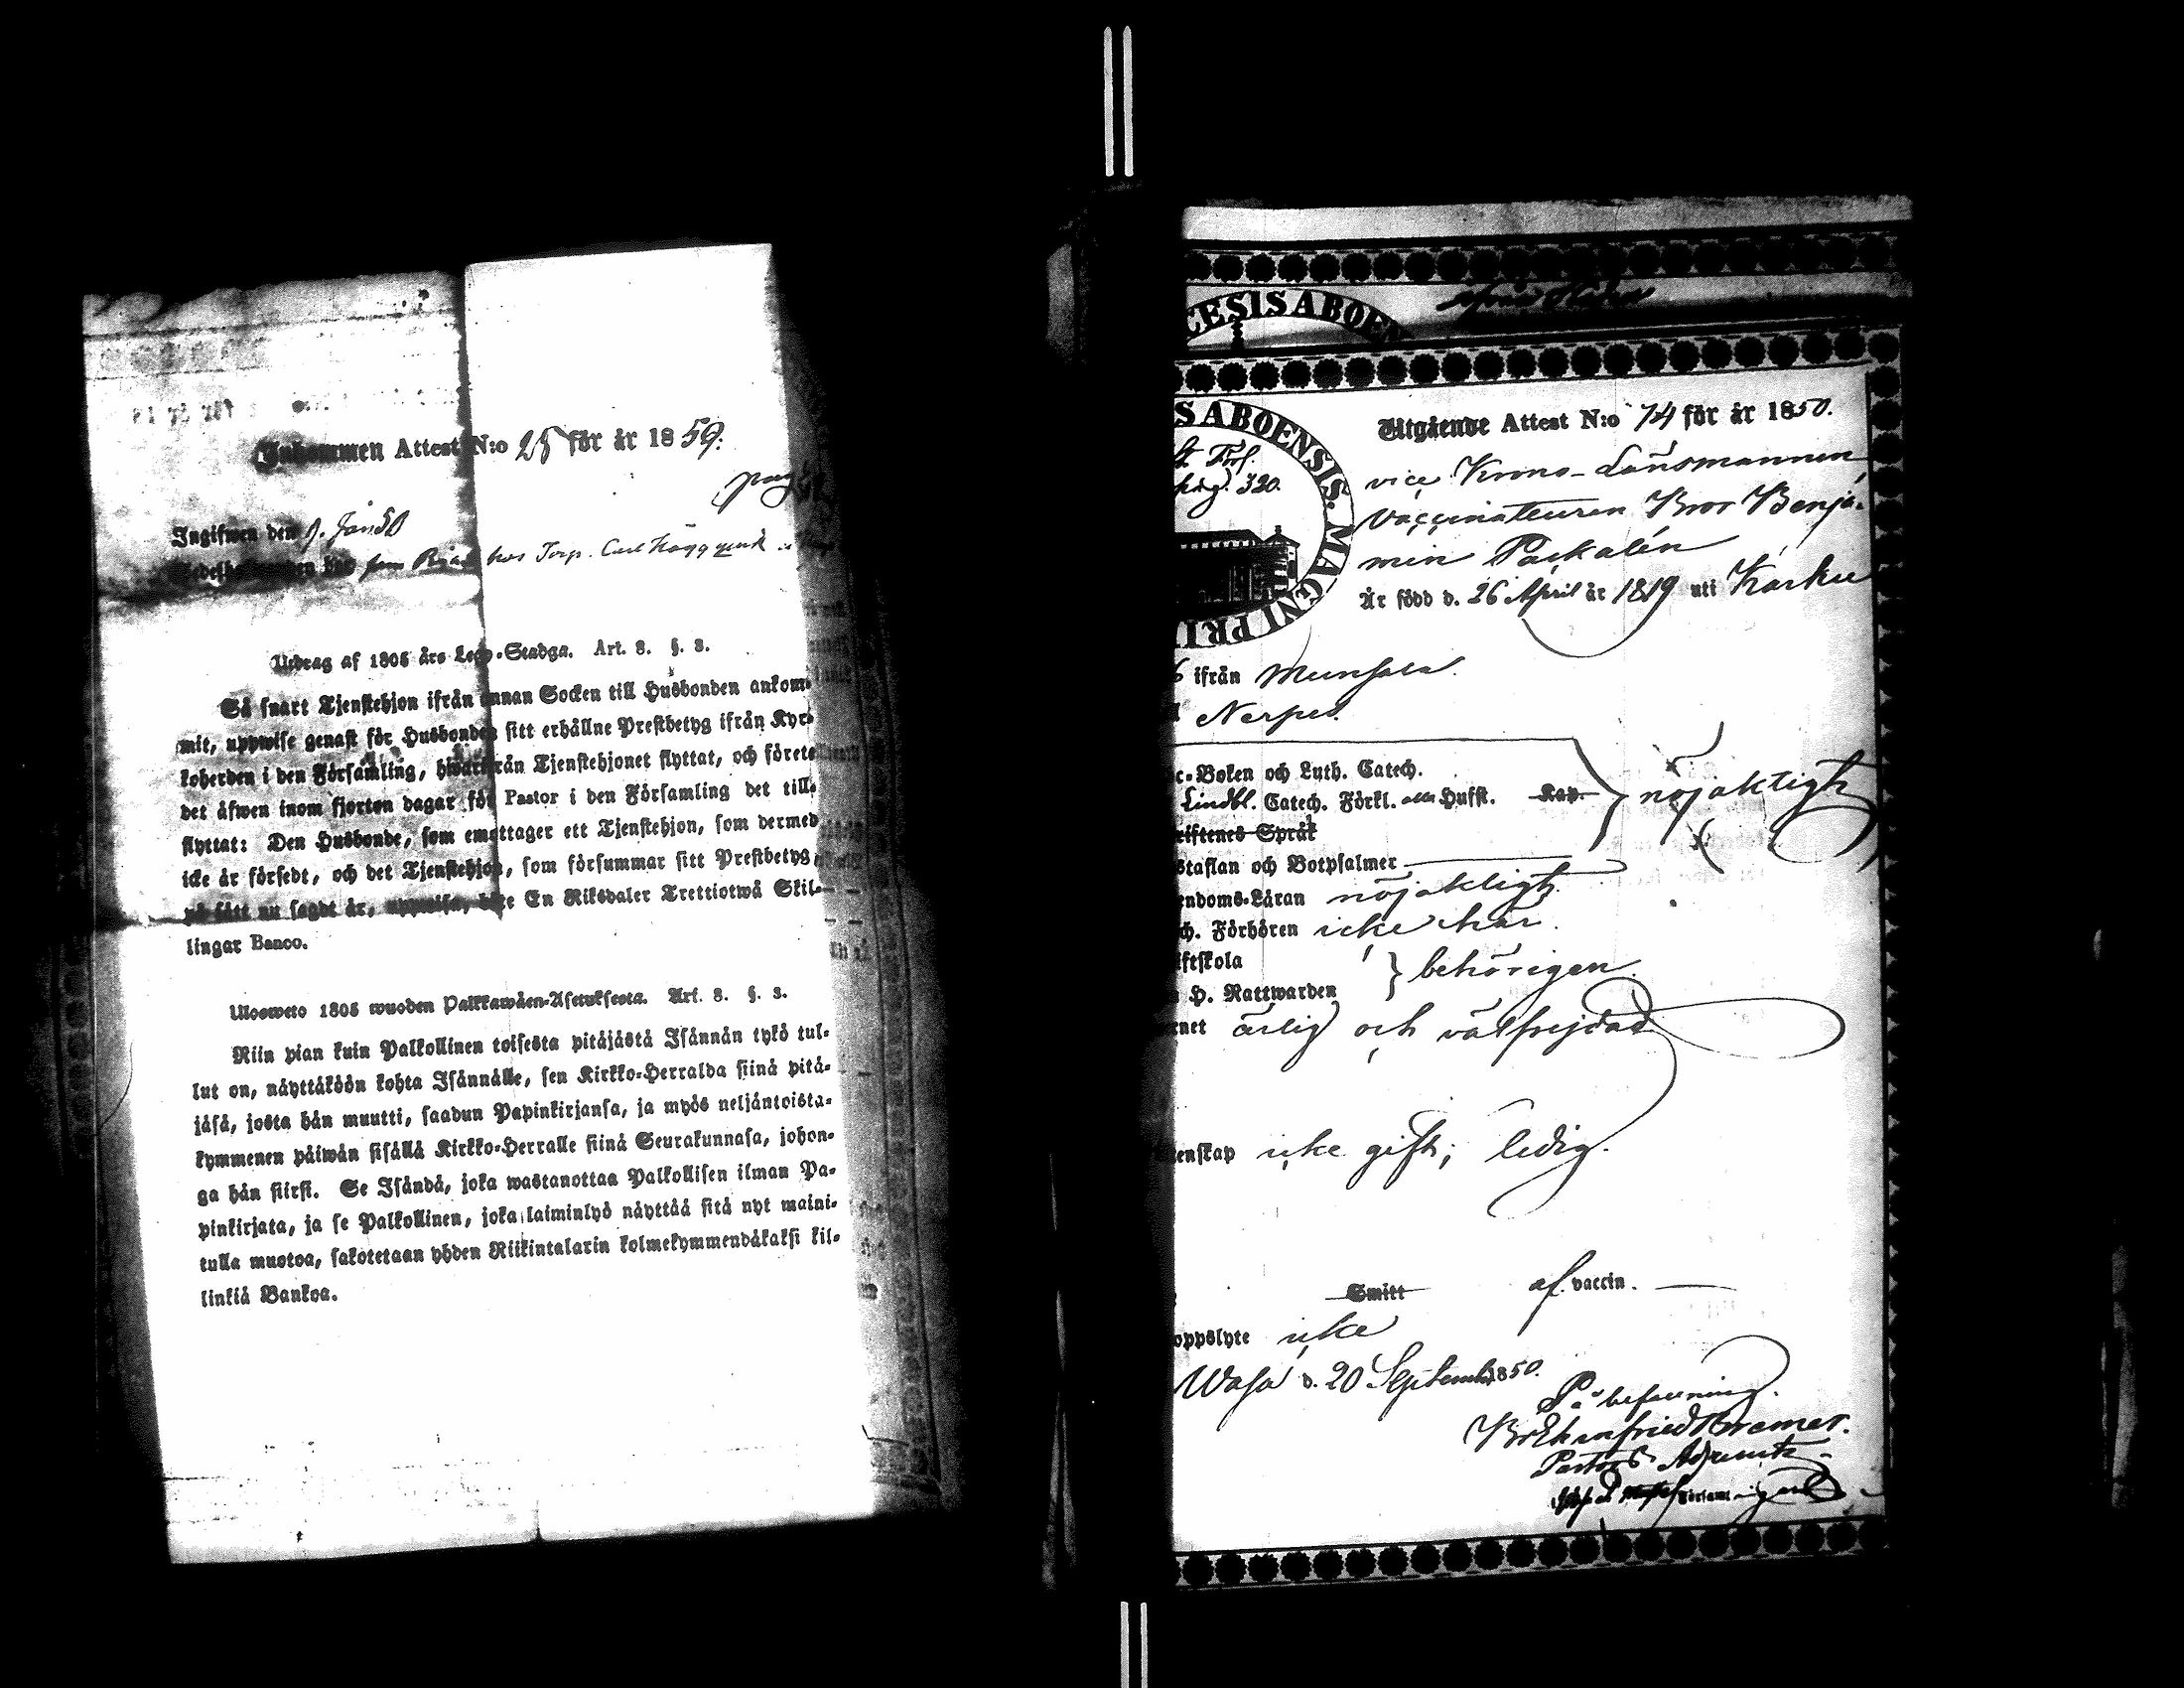 Inkommen Attest N:o 25 för år 1859.
Ingifwen den
hos Torp. Carl
Utdrag af 1805 års Lego-Stadga. Art. 8. §. 3.
Så snart Tjenstehjon ifrån annan Socken till Husbonden ankom-
mit, uppwise genast för Husbonden sitt erhållne Prestbetyg ifrån Kyr-
koherden i den Församling, hwarifrån Tjenstehjonet flyttat, och förete
det åfwen inom fjorton dagar för Pastor i den Församling det till-
flyttat: Den Husbonde, som emottager ett Tjenstehjon, som dermed
icke är försedt, och det Tjenstehjon, som försummar sitt Prestbetyg,
på sätt nu sagdt är, uppwisa, böte En Riksdaler Trettiotwå Skil-
lingar Banco.
Ulosweto 1805 wuoden Palkkawäen-Asetuksesta. Art. 8. §. 3.
Niin pian kuin Palkollinen toisesta pitäjästä Isännän tykö tul-
lut on, näyttäköön kohta Isännälle, sen Kirkko-Herralda siinä pitä-
jäsä, josta hän muutti, saadun Papinkirjansa, ja myös neljäntoista-
kymmenen päiwän sisällä Kirkko-Herralle siinä Seurakunnasa, johon-
ga hän siirsi. Se Isändä, joka wastanottaa Palkollisen ilman Pa-
pinkirjata, ja se Palkollinen, joka laiminlyö näyttää sitä nyt maini-
tulla muotoa, sakotetaan yhden Riikintalarin kolmekymmendäkaksi kil-
linkiä Bankoa.
CESIS ABOEN
SABOENSIS. MAGNI PRI
pag. 320.
Utgående Attest N:o 74 för år 1850.
vice Krono-Länsmannen
Vaccinateuren Bror Benja-
min Paskalén
Är född d. 26 April år 1819 uti Karku
6 ifrån Munsala
Nerpes.
c-Boken och Luth. Catech.
Lindbl. Catech. Förkl. eller Hufst. Kap. nöjaktigt
riftenes Språk
staflan och Botpsalmer
endoms-Läran nöjaktigt
ch. Förhören icke här.
iftskola
H. Nattwarden behörigen.
rnet ärlig och välfrejdad
enskap icke gift; ledig.
Smitt af vaccin.
oppslyte icke
Wasa d. 20 September 1850.
På befallning.
Pastors Adjunkt